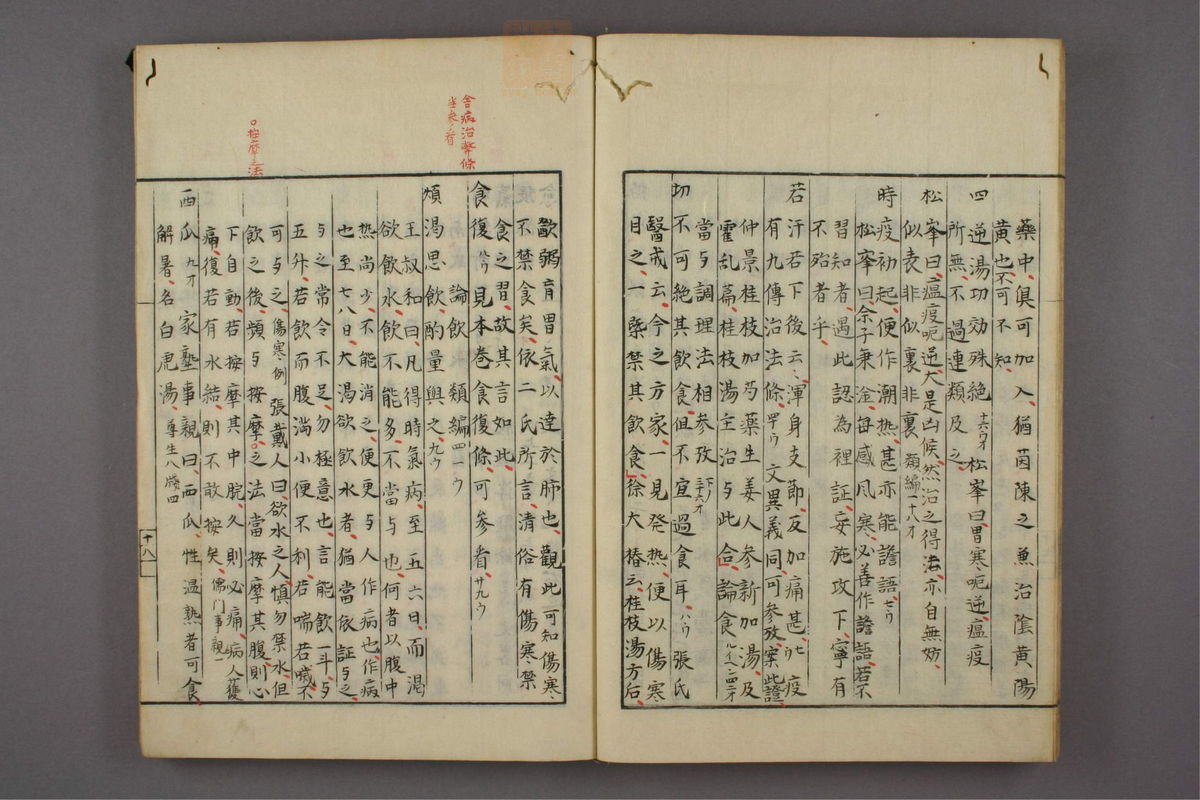 藥中、俱可加入、猶茵陳之兼治陰黃陽
黃也、不可不知、
四逆湯功効殊絕 十六ウオ 松峯曰、胃寒呃逆、瘟疫
所無、不過連類及之、
松峯曰、瘟疫呃逆、大是凶候、然治之得法、亦自無妨、
似表非似裏非裏 類編一十八オ
時疫初起、便作潮熱、甚亦能譫語、七ウ
松峯曰、余子秉淦、每感風寒、必善作譫語、若不
習知者、遇此認為裡証、妄施攻下、寧有
不殆者乎、
若汗若下後云々、渾身支節、反加痛甚、ウヒ 疫
有九傳治法條、罒ウ 文異義同、可參攷、案此證、
仲景桂枝加芍藥生姜人參新加湯、及
霍乱篇、桂枝湯主治与此合、論食
當与調理法相參攷、下ノ三十六オ
切不可絕其飲食、但不宜過食耳、ハウ 張氏
醫戒云、今之方家、一見発热、便以傷寒
目之、一槩禁其飲食、徐大椿云、桂枝湯方后、
歠粥、育胃氣、以達於肺也、觀此可知傷寒
不禁食矣、依二氏所言、清俗有傷寒禁
食之習、故其言如此、
食復 見本巻食復條、可參看、廿九ウ
論飲 類編四一ウ
煩渴思飲、酌量與之、九ウ
王叔和曰、凡得時氣病、至五六日、而渴
欲飲水、飲不能多、不當与也、何者、以腹中
热尚少、不能消之、便更与人作病也、作病
也、至七八日、大渴欲飲水者、猶當依証与之、
与之常令不足、勿極意也、言能飲一斗、与
五升、若飲而腹滿、小便不利、若喘若噦、不
可与之、傷寒例 張戴人曰、欲水之人、慎勿禁水、但
飲之後、頻与按摩之法、當按摩其腹、則心
下自動、若按摩其中脘、久則必痛、病人獲
痛、復若有水結、則不敢按矣、儒門事親一
西瓜 九オ 家塾事親曰、西瓜、性溫熱者可食、
解暑、名白虎湯、尊生八牋四
十八
舍病治弊條
○按摩之法